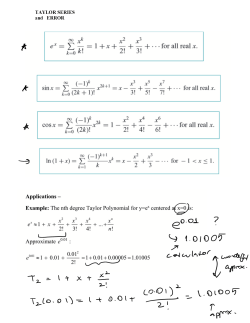 TAYLOR SERIES
and ERROR
e^x = ∑_{k=0}^{∞} x^k/k! = 1 + x + x^2/2! + x^3/3! + ··· for all real x.
sin x = ∑_{k=0}^{∞} (-1)^k/(2k+1)! x^{2k+1} = x - x^3/3! + x^5/5! - x^7/7! + ··· for all real x.
cos x = ∑_{k=0}^{∞} (-1)^k/(2k)! x^{2k} = 1 - x^2/2! + x^4/4! - x^6/6! + ··· for all real x.
ln(1 + x) = ∑ (-1)^{k+1}/k x^k = x - x^2/2 + x^3/3 ··· for -1 < x ≤ 1.
Applications –
Example: The nth degree Taylor Polynomial for y=e^x centered at x=0 is:
e^x ≈ 1 + x + x^2/2! + x^3/3! + x^4/4! + ... + x^n/n!
e^0.01 ?
Approximate e^0.01 :
↳ 1.01005
calculator
approx.
e^0.01 ≈ 1 + 0.01 + 0.01^2/2! = 1+0.01+0.00005 = 1.01005
T_2 = 1 + x + x^2/2!
T_2(0.01) = 1 + 0.01 + (0.01)^2/2! = 1.01005
↑
approx.